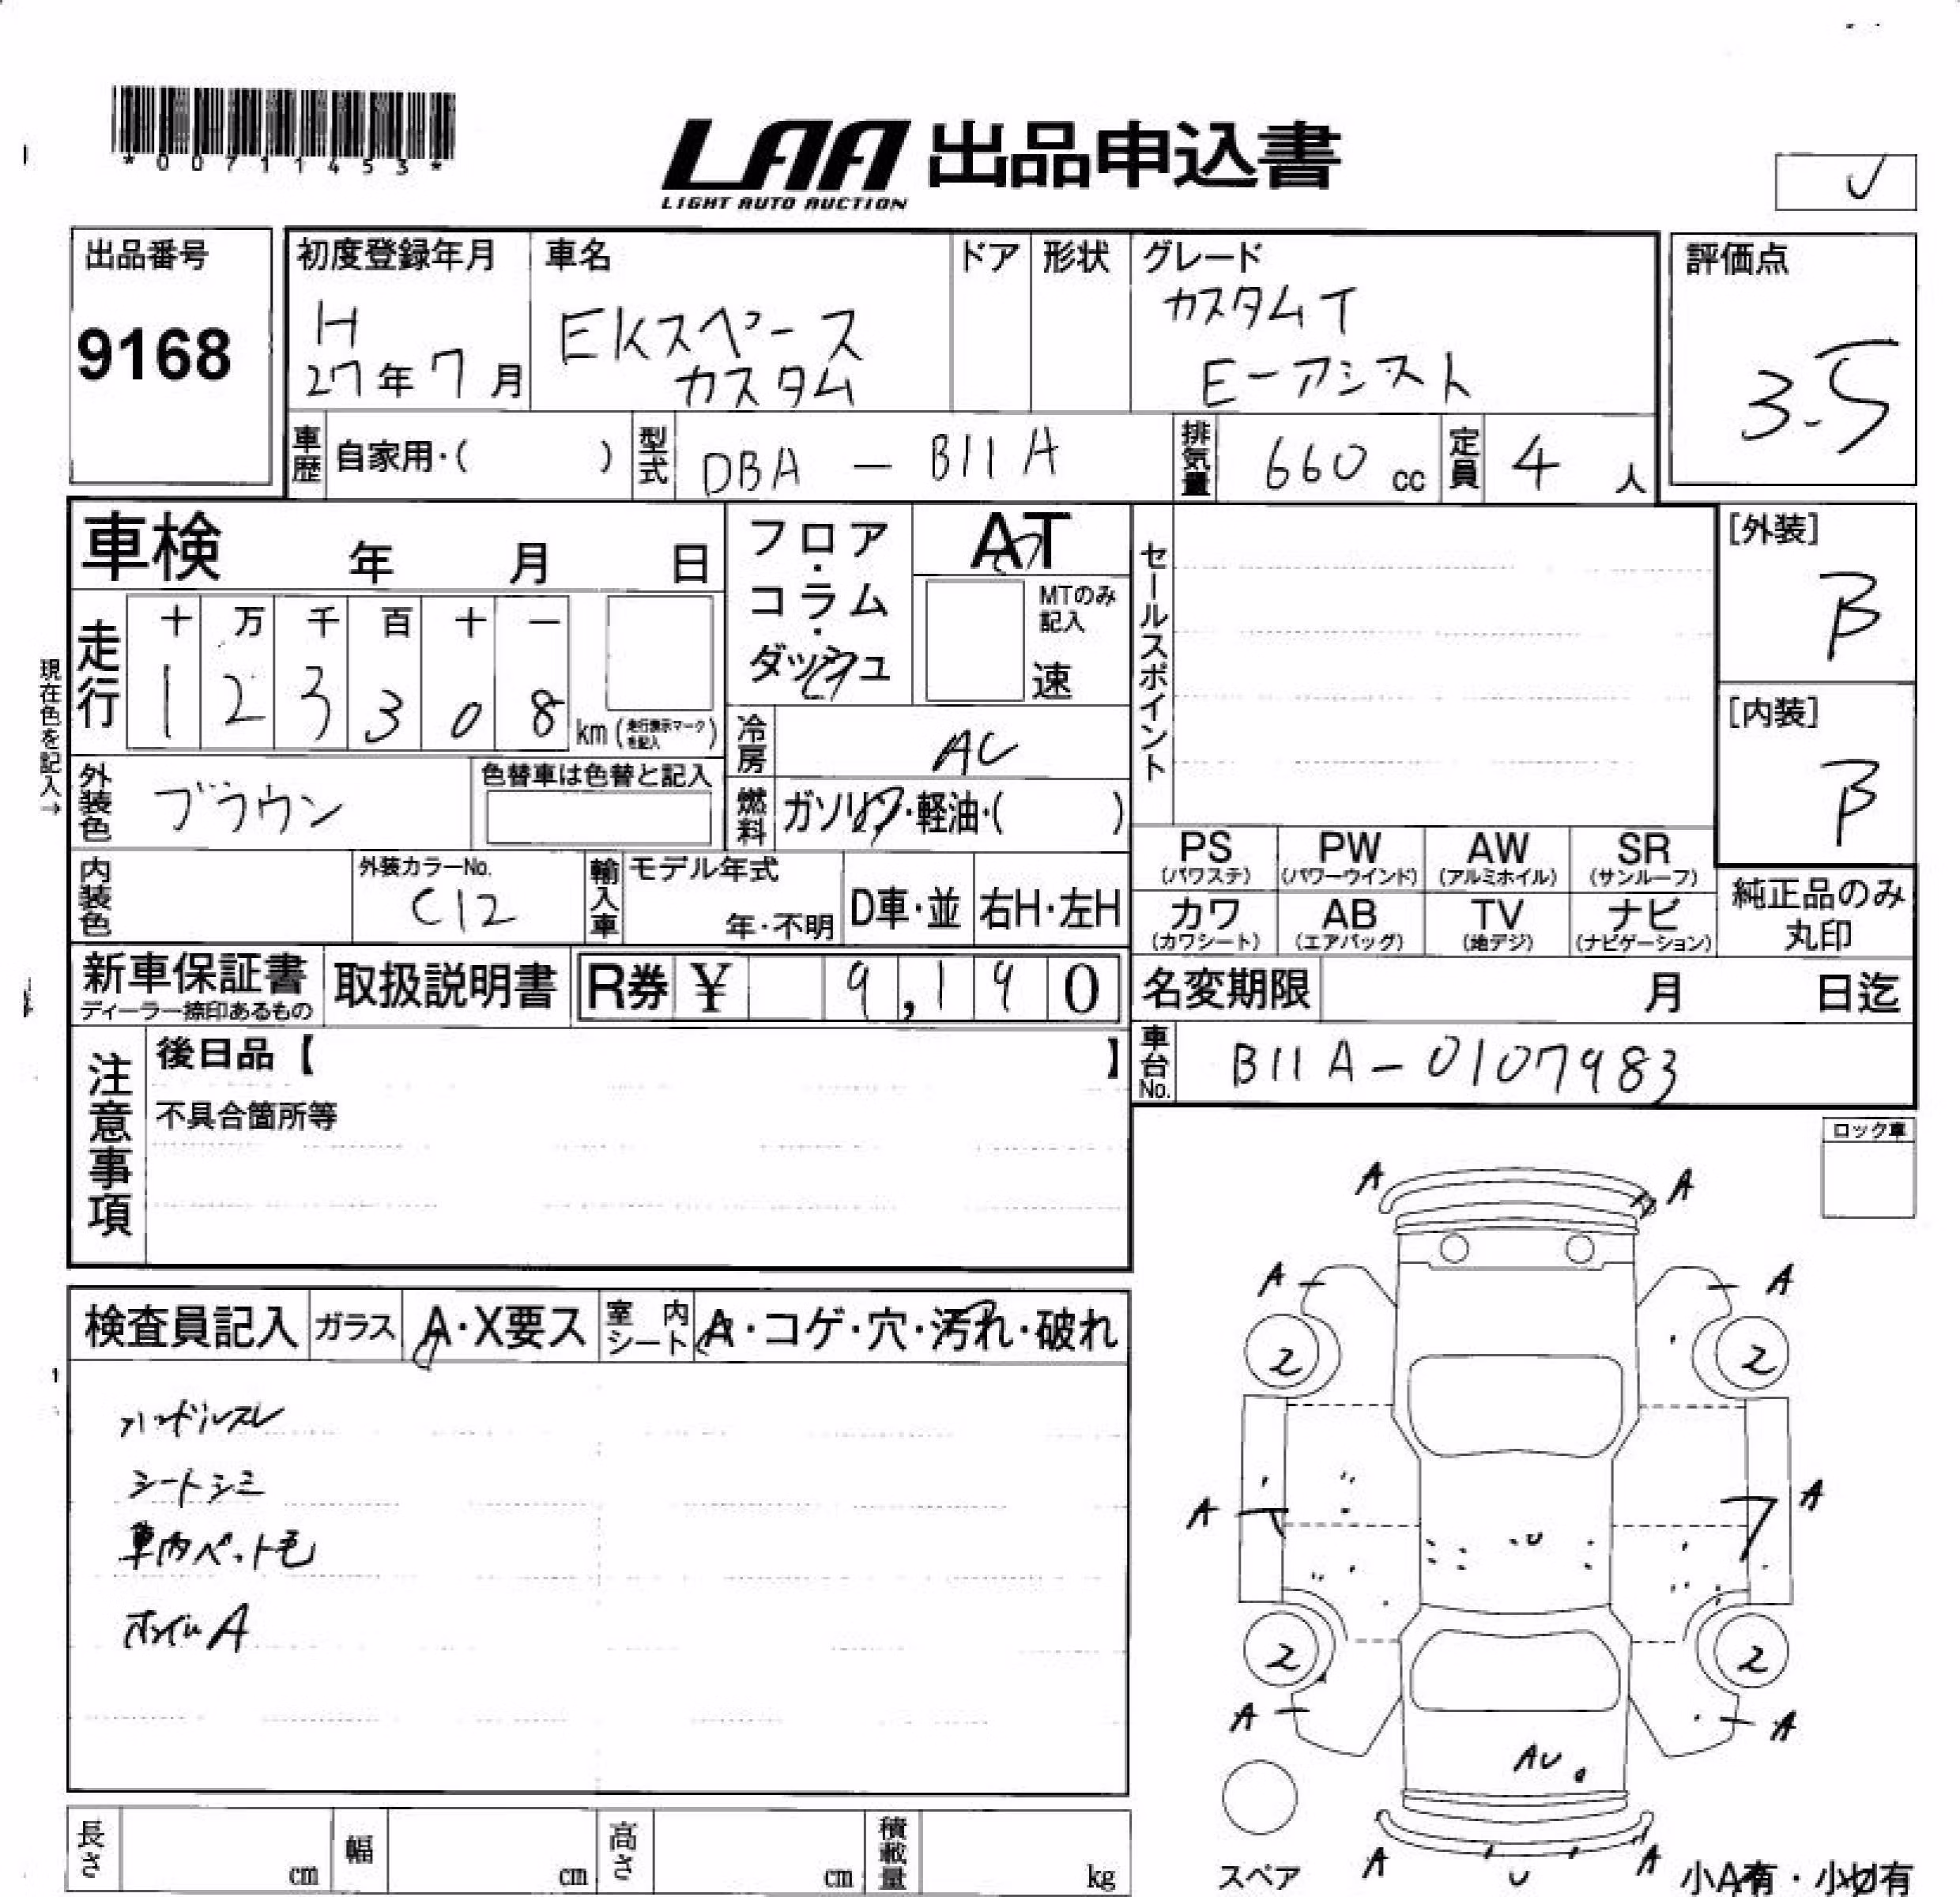 *00711453*
LAA 出品申込書
LIGHT AUTO AUCTION
出品番号
9168
初度登録年月
H
27年7月
車名
EKスペース
カスタム
ドア
形状
グレード
カスタムT
E-アシスト
評価点
3.5
車歴 自家用・( )
型式 DBA - B11A
排気量 660 cc
定員 4 人
車検 年 月 日
走行
十 万 千 百 十 一
1 2 3 3 0 8 km (走行表示マークを記入)
現在色を記入→
フロア・コラム・ダッシュ
AT
MTのみ記入
速
冷房 AC
燃料 ガソリン・軽油・( )
外装色 ブラウン
色替車は色替と記入
内装色
外装カラーNo.
C12
輸入車
モデル年式
年・不明
D車・並
右H・左H
セールスポイント
[外装]
B
[内装]
B
PS (パワステ)
PW (パワーウインド)
AW (アルミホイル)
SR (サンルーフ)
カワ (カワシート)
AB (エアバッグ)
TV (地デジ)
ナビ (ナビゲーション)
純正品のみ
丸印
新車保証書
ディーラー捺印あるもの
取扱説明書
R券 ¥ 9,190
名変期限 月 日迄
車台No. B11A-0107983
注意事項
後日品【 】
不具合箇所等
ロック車
検査員記入
ガラス A・X要ス
室内シート A・コゲ・穴・汚れ・破れ
ハンドルスレ
シートシミ
車内ペット毛
ホイルA
A A
A A
2 2
A A
U
2 2
A A
AU
A U A
スペア
小A有・小U有
長さ cm
幅 cm
高さ cm
積載量 kg